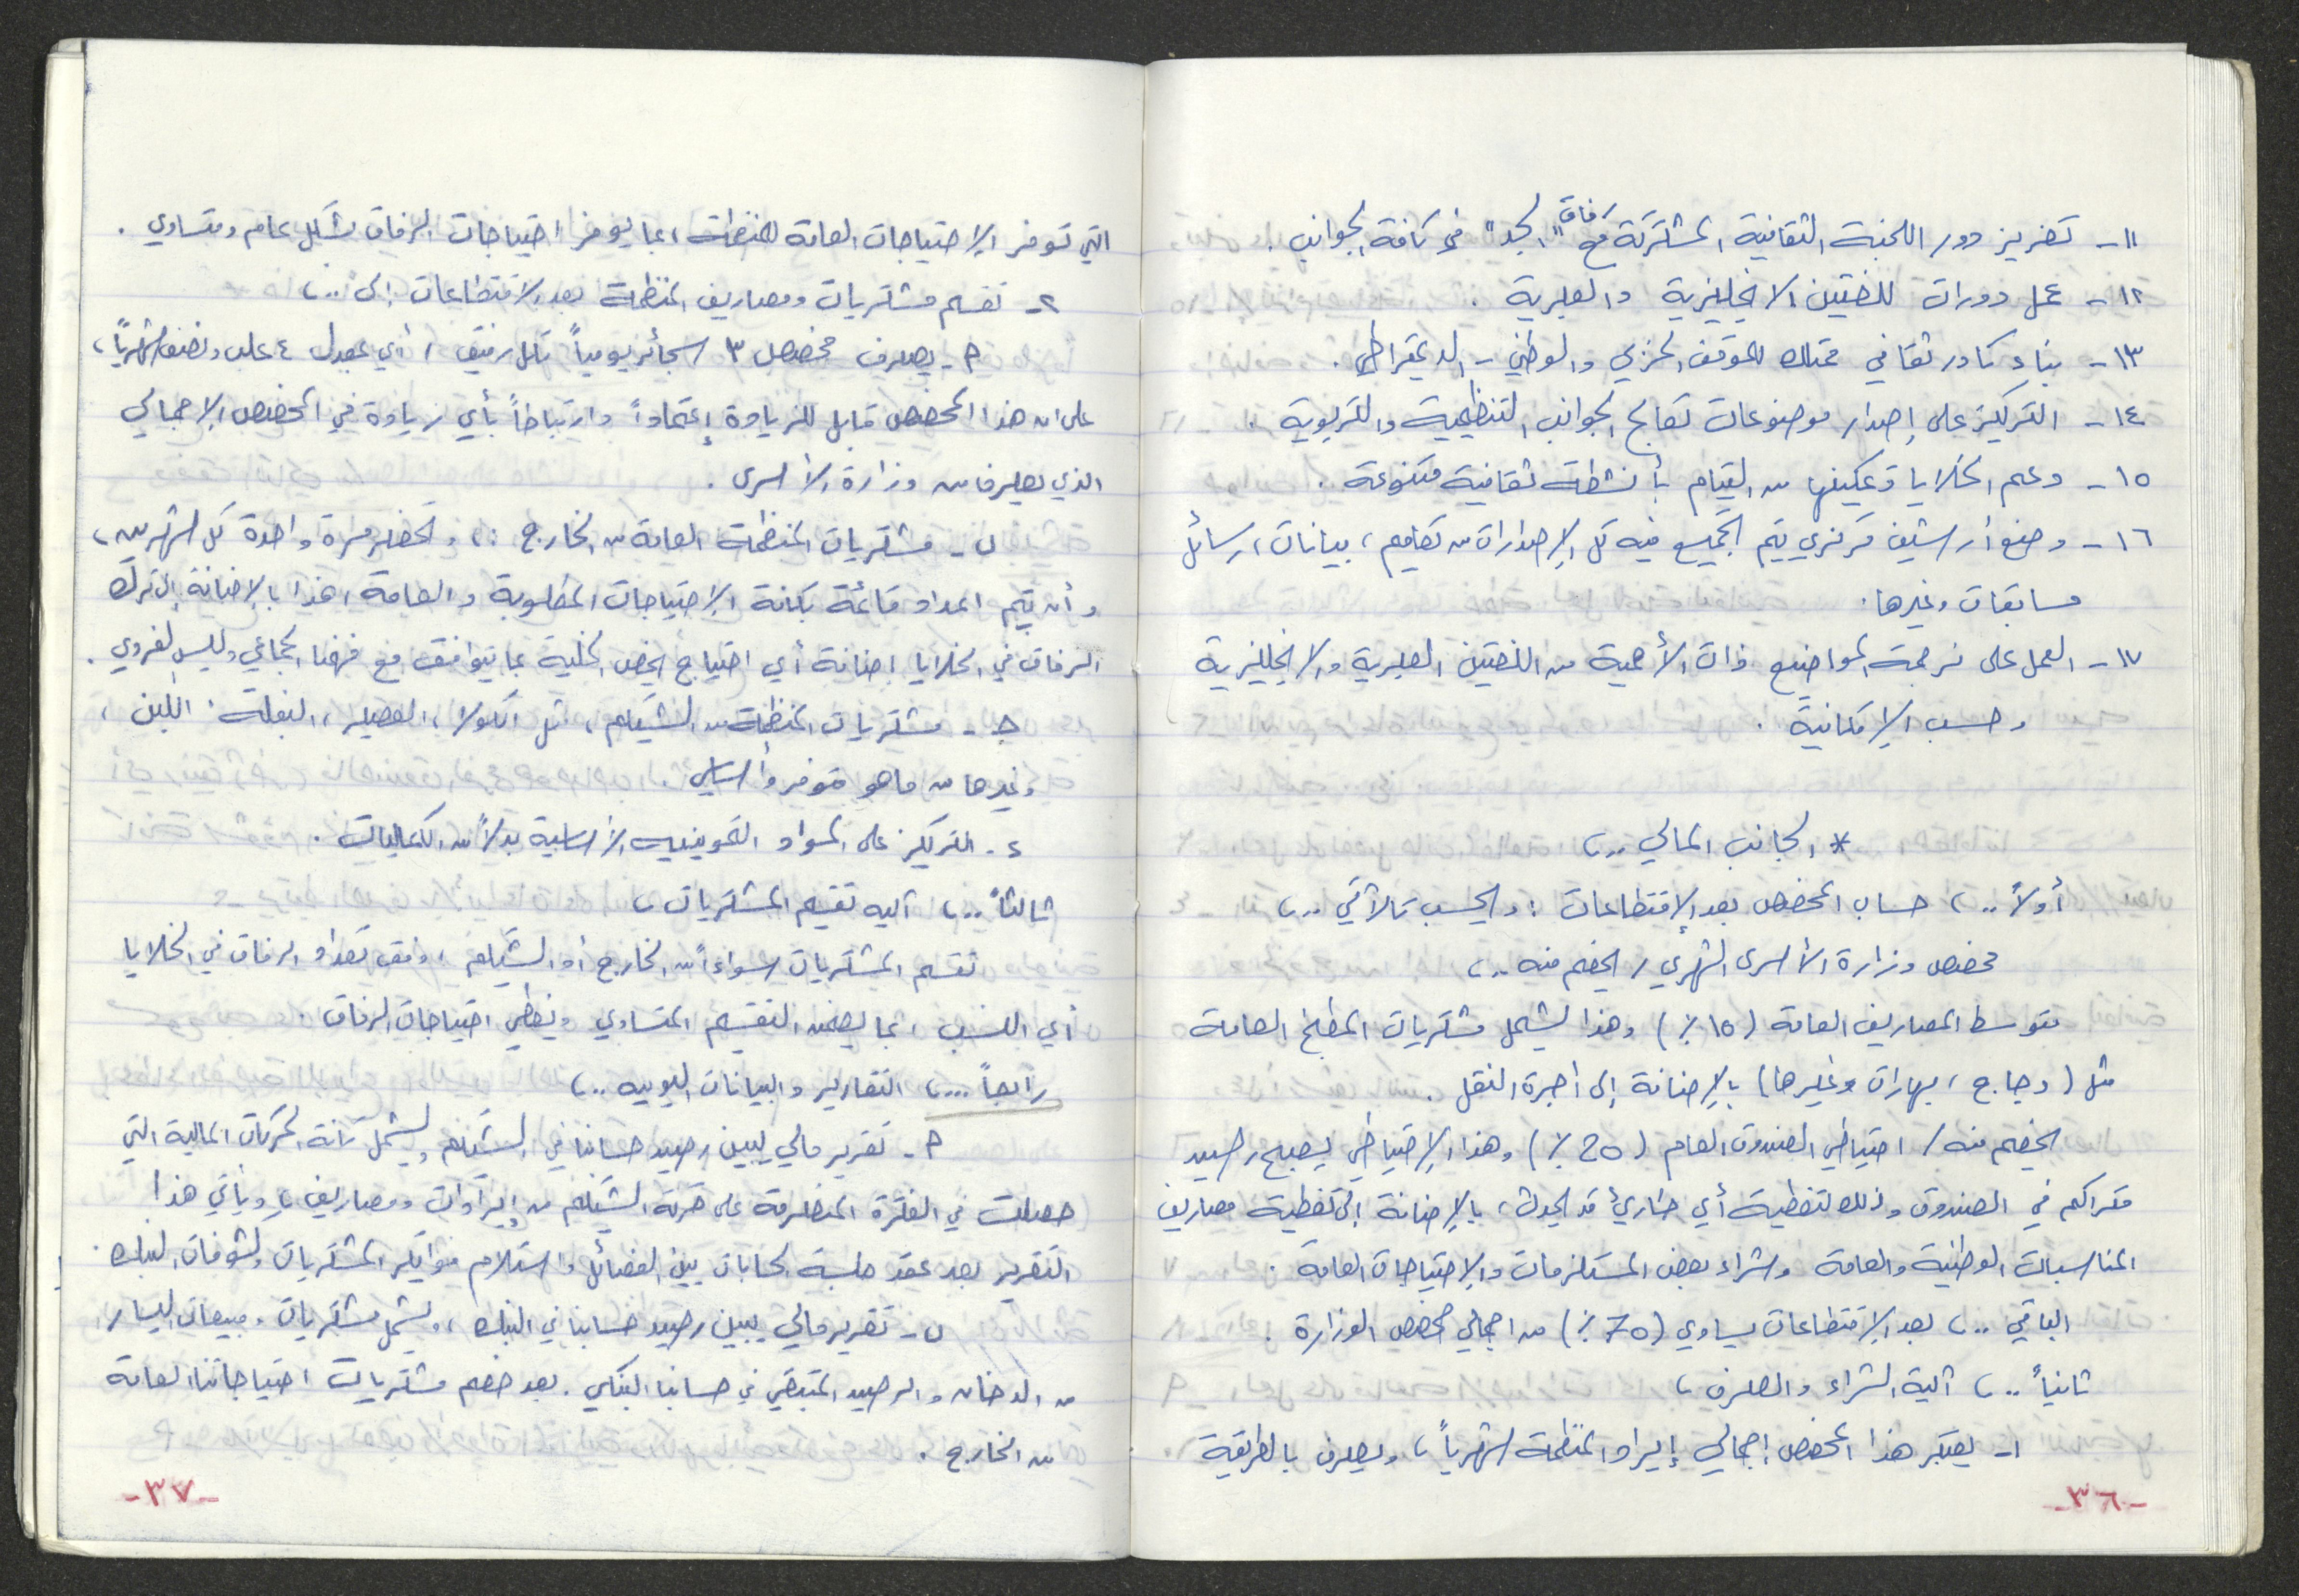 ١١- تعزيز دور اللجنة الثقافية المشتركة مع رفاق "الجد" في كافة الجوانب .
١٢- عمل دورات للغتين الانجليزية والعبرية .
١٣- بناء كادر ثقافي ممتلك للموقف الحزبي والوطني - الديمقراطي .
١٤- التركيز على إصدار موضوعات تعالج الجوانب التنظيمية والتربوية .
١٥- دعم الخلايا وتمكينها من القيام بأنشطة ثقافية متنوعة .
١٦- وضع أرشيف مركزي يتم تجميع فيه كل الإصدارات من تعاميم ، بيانات ، رسائل
مسابقات وغيرها .
١٧- العمل على ترجمة المواضيع ذات الأهمية من اللغتين العبرية والإنجليزية
وحسب الإمكانية .
* الجانب المالي ..،
أولاً ..، حساب المخصص بعد الإقتطاعات : ويحسب كالآتي ..،
مخصص وزارة الأسرى الشهري / يخصم منه ..،
متوسط المصاريف العامة (١٥٪) وهذا يشمل مشتريات المطبخ العامة
مثل (دجاج ، بهارات وغيرها) بالإضافة إلى أجرة النقل .
يخصم منه / احتياطي الصندوق العام (٢٥٪) وهذا الإحتياطي يصبح رصيد
متراكم في الصندوق وذلك لتغطية أي طارئ قد يحدث ، بالإضافة إلى تغطية مصاريف
المناسبات الوطنية والعامة وشراء بعض المستلزمات والإحتياجات العامة .
الباقي ..، بعد الإقتطاعات يساوي (٧٥٪) من اجمالي مخصص الوزارة .
ثانياً ..، آلية الشراء والصرف ،
١- يعتبر هذا المخصص إجمالي إيراد المنظمة شهرياً ، ويصرف بالطريقة
-٣٦-
التي توفر الإحتياجات العامة للمنظمة ، بما يوفر احتياجات الرفاق بشكل عام ومتساوي .
٢- تقسم مشتريات ومصاريف المنظمة بعد الاقتطاعات إلى ..،
أ- يصرف مخصص ٣ سجائر يومياً لكل رفيق ، أي بمعدل ٤ علب ونصف شهرياً ،
على ان هذا المخصص قابل للزيادة إعتماداً وارتباطاً بأي زيادة في المخصص الإجمالي
الذي يصرف من وزارة الأسرى .
ب- مشتريات المنظمة العامة من الخارج :، وتحضر مرة واحدة كل شهرين ،
وأن يتم اعداد قائمة بكافة الإحتياجات المطلوبة والعامة ، هذا بالإضافة إلى ترك
الرفاق في الخلايا إضافة أي احتياج يخص الخلية بما يتوافق مع فهمنا الجماعي وليس الفردي .
جـ- مشتريات المنظمة من الشيكم ، مثل الكولا ، العصير ، البفلة ، اللبن ،
وغيرها من ما هو متوفر وأساسي .
د- التركيز على المواد التموينيه الأساسية بدلاً من الكماليات .
ثالثاً ..، آليه تقسيم المشتريات ،
تقسم المشتريات سواءاً من الخارج أو الشيكم ، وفق تعداد الرفاق في الخلايا
أي النسب ، بما يضمن التقسيم المتساوي ويغطي احتياجات الرفاق .
رابعاً ...، التقارير والبيانات ..،
أ- تقرير مالي يبين رصيد حسابنا في الشيكم ويشمل كافة الحركات المالية التي
حصلت في الفترة المنصرمة على حركة الشيكم من إيرادات ومصاريف ، ويأتي هذا
التقرير بعد عقد جلسة الحسابات بين الفصائل واستلام فواتير المشتريات وكشوفات البنك .
ب- تقرير مالي يبين رصيد حسابنا في البنك ، ويشمل مشتريات ومبيعات اليسار
من الدخان والرصيد المتبقي في حسابنا البنكي . بعد خصم مشتريات احتياجاتنا العامة
من الخارج .
-٣٧-